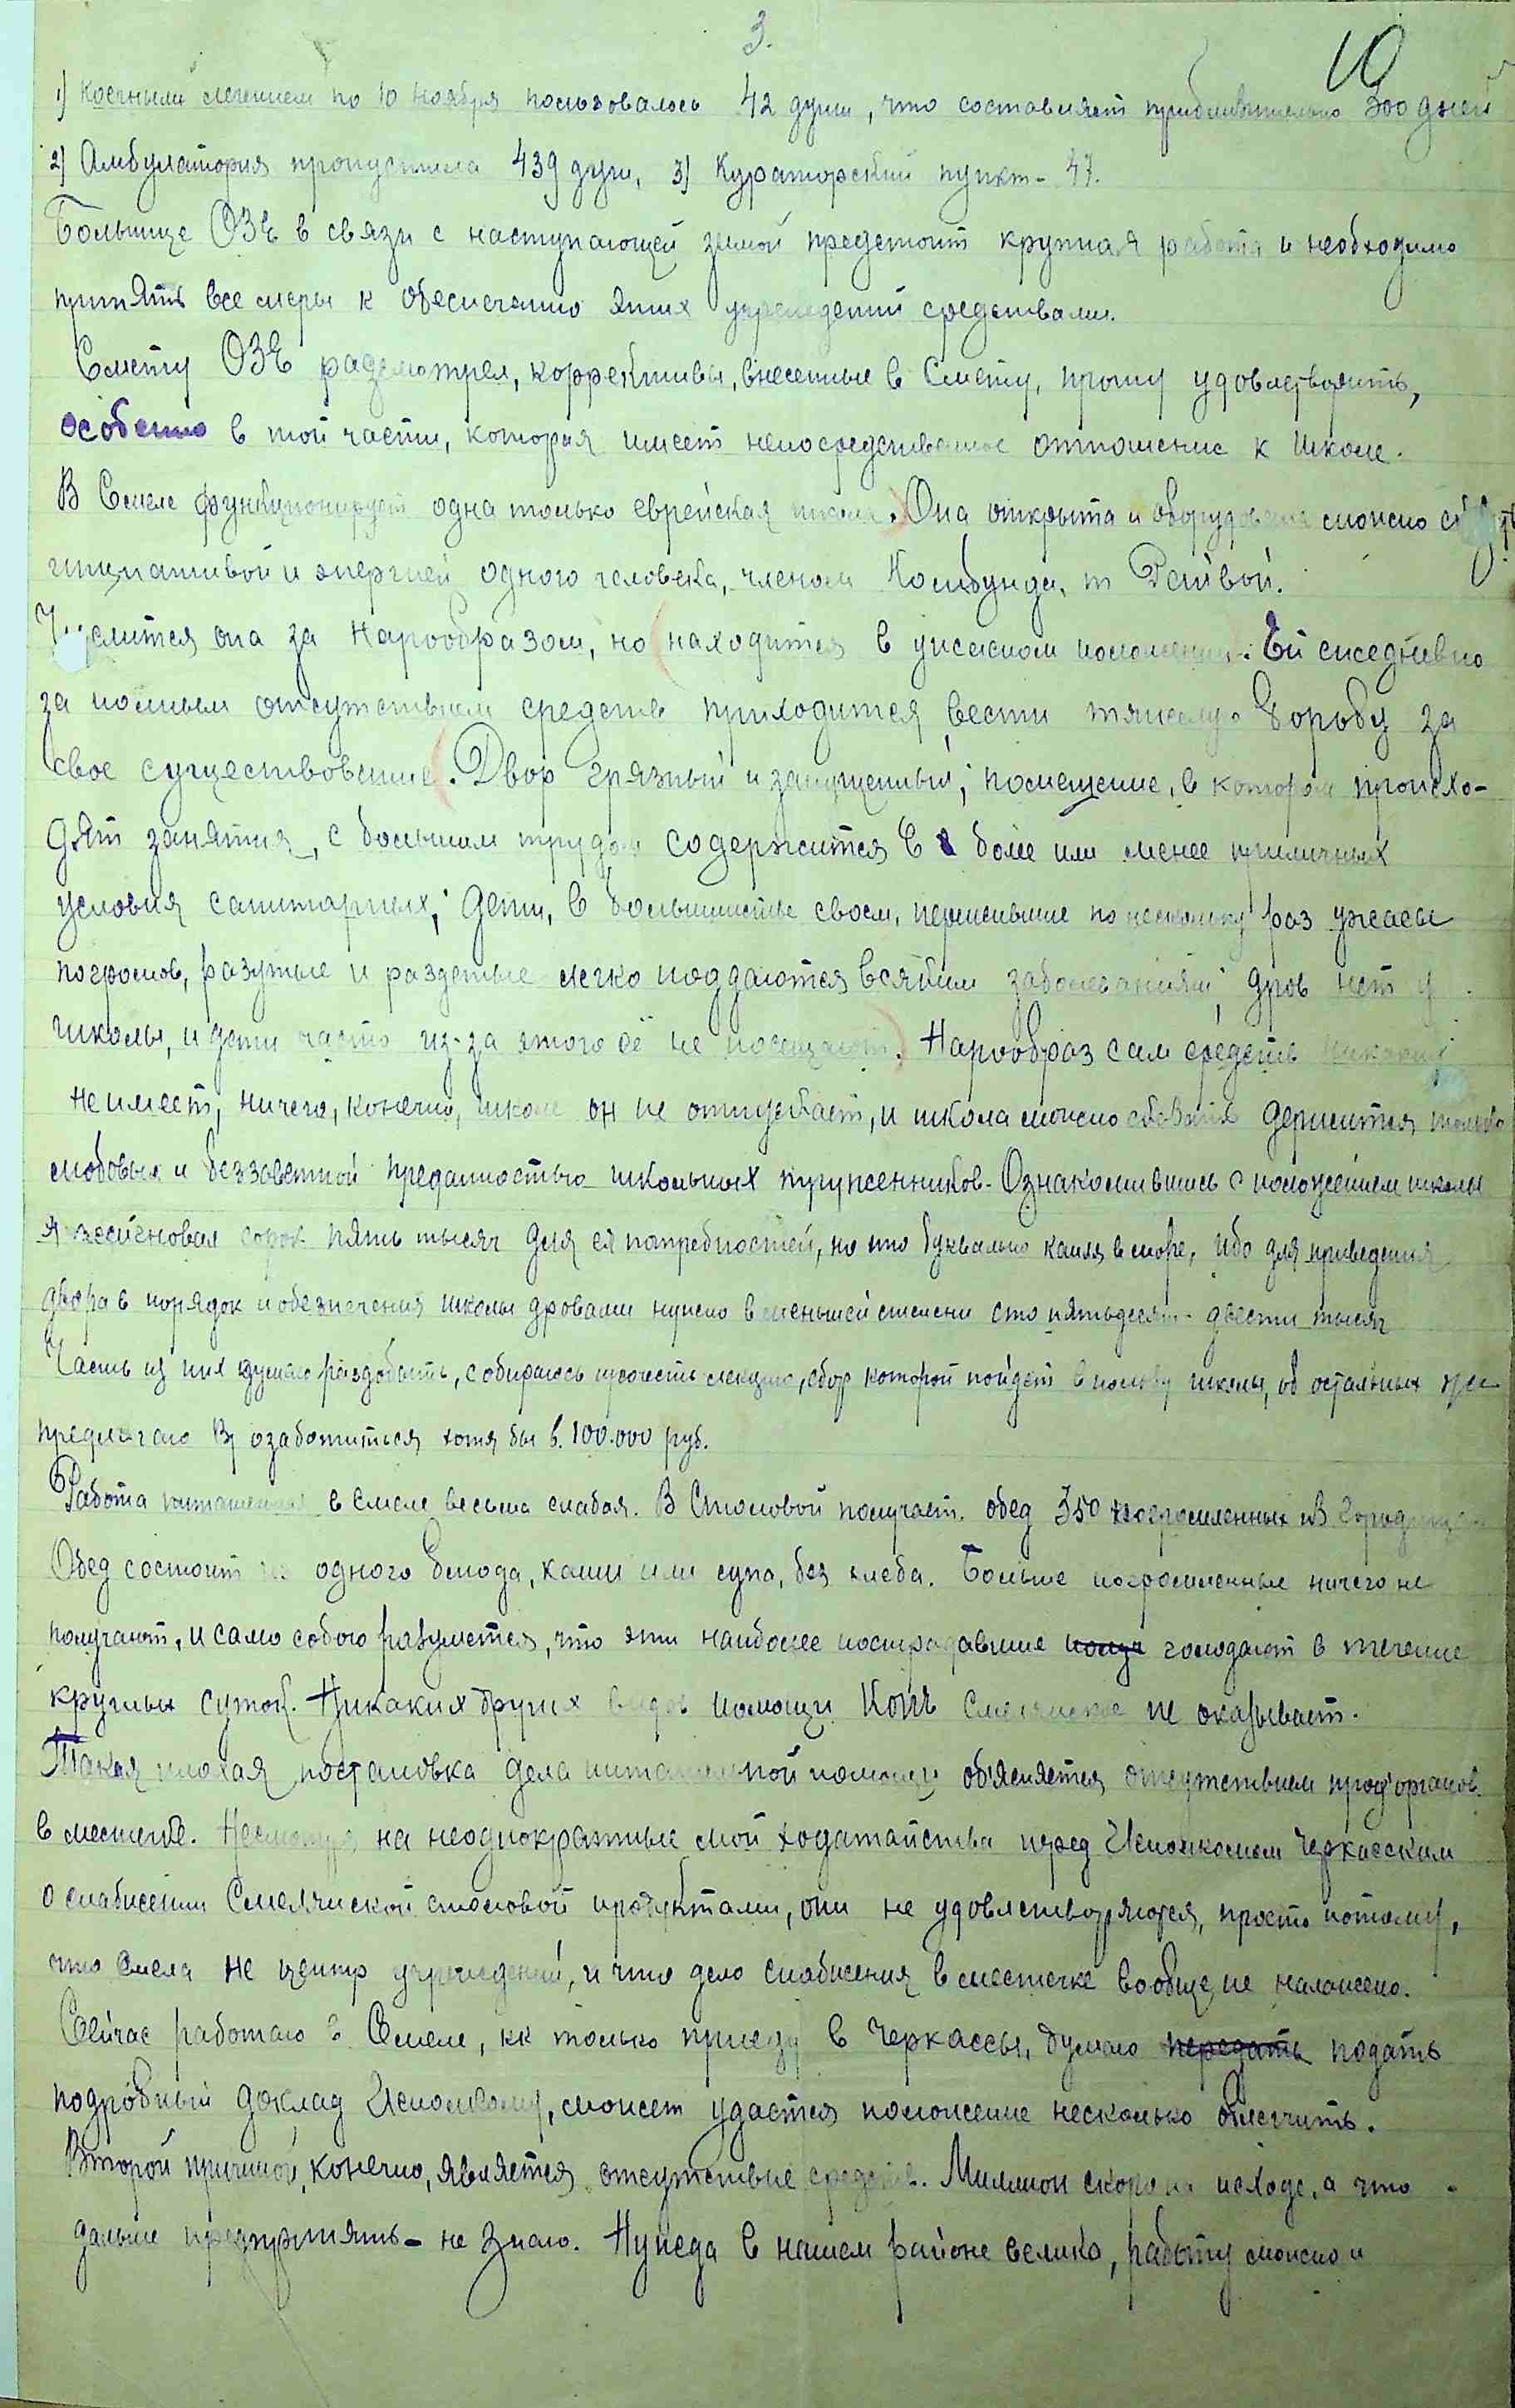 3.
10
1) Коечным лечением по 10 ноября пользовалось 42 души, что составляет приблизительно 300 дней
2) Амбулатория пропустила 439 душ, 3) Кураторский пункт - 47.
Больнице ОЗЕ в связи с наступающей зимой предстоит крупная работа и необходимо
принять все меры к обеспечению этих учреждений средствами.
Смету ОЗЕ разсмотрел, коррективы, внесенные в смету, прошу удовлетворить,
особенно в той части, которая имеет непосредственное отношение к школе.
В Смеле функционирует одна только еврейская школа. Она открыта и оборудована можно
инициативой и энергией одного человека, членом Комбунда, т
она за Наробразом, но находится в ужасном положении. Ей ежедневно
за полным отсутствием средств приходится вести тяжелую борьбу за
свое существование. Двор грязный и запущенный; помещение, в котором происхо-
дят занятия, с большим трудом содержится в более или менее приличных
условия санитарных; дети, в большинстве своем, пережившие по нескольку раз ужасы
погромов, разутые и раздетые легко поддаются всяким заболеваниям; дров нет у
школы, и дети часто из-за этого её не посещают. Наробраз сам средств никаких
не имеет, ничего, конечно, школе он не отпускает, и школа можно сказать держится только
любовью и беззаветной преданностью школьных тружеников. Ознакомившись с положением школы
я ассигновал сорок пять тысяч для её потребностей, но это буквально капля в море, ибо для приведения
двора в порядок и обезпечения школы дровами нужно в меньшей степени сто пятьдесят - двести тысяч
Часть из них думаю раздобыть, собираюсь прочесть лекцию, сбор которой пойдет в пользу школы, об остальных же
предлагаю Вам озаботиться хотя бы в 100.000 руб.
Работа питательная в Смеле весьма слабая. В Столовой получает обед 350 погромленных из Городища
Обед состоит из одного блюда, каши или супа, без хлеба. Больше погромленные ничего не
получают, и само собою разумеется, что эти наиболее пострадавшие получ голодают в течение
круглых суток. Никаких других видов помощи Смелянская не оказывает.
Такая плохая постановка дела питательной помощи об'ясняется отсутствием прод'органов
в местечке. Несмотря на неоднократные мои ходатайства перед Исполкомом Черкасским
о снабжении Смелянской столовой продуктами, они не удовлетворяются, просто потому,
что Смела не центр учреждений, и что дело снабжения в местечке вообще не налажено.
Сейчас работаю в Смеле, как только приеду в Черкассы, думаю передать подать
подробный доклад Исполкому, может удастся положение несколько облегчить.
Второй причиной, конечно, является отсутствие средств. Миллион скоро на исходе, а что
дальше предпринять - не знаю. Нужда в нашем районе велика, работу можно и